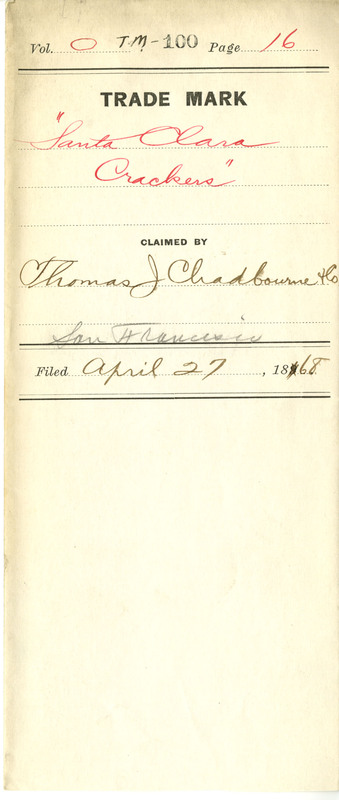 Vol. 0 T.M-100 Page 16
TRADE MARK
"Santa Clara
Crackers"
CLAIMED BY
Thomas J Chadbourne & Co
San Francisco
Filed April 27, 1868